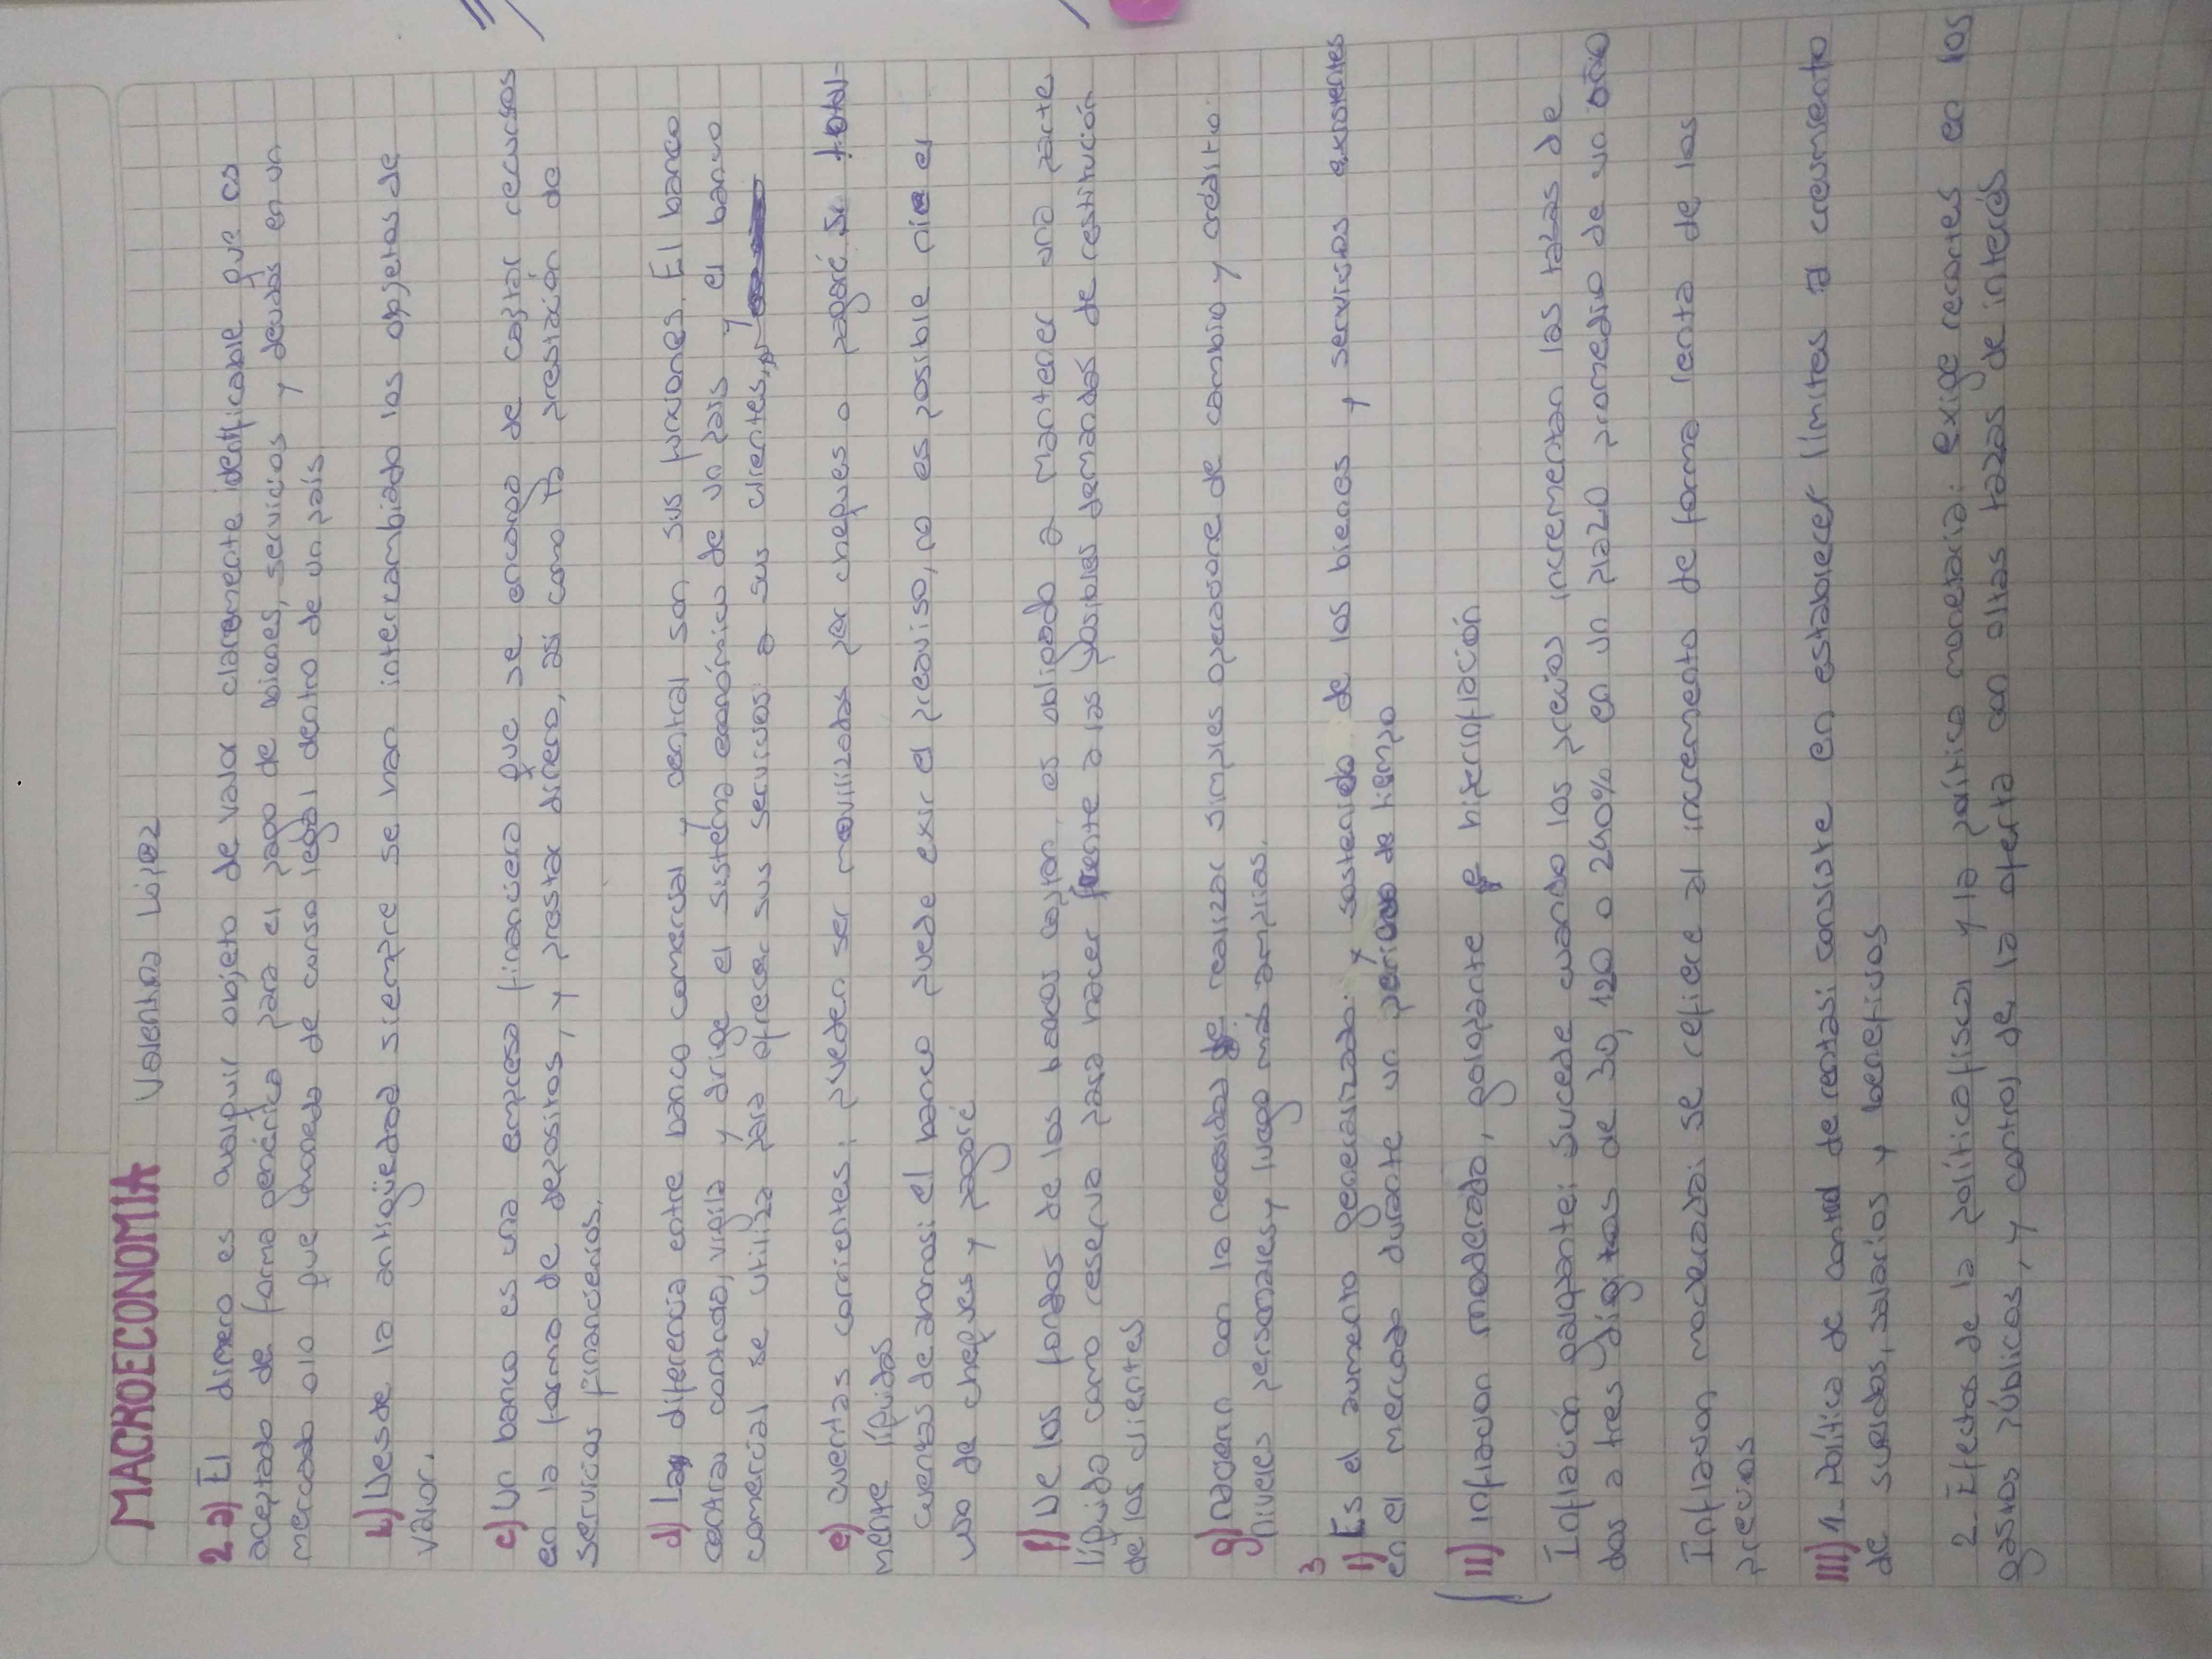 MACROECONOMIA Valentina López
2 a) El dinero es cualquir objeto de valor claramente identificable que es
aceptado de forma genérica para el pago de bienes, servicios y deudas en un
mercado o lo que moneda de corso legal dentro de un país
b) Desde la antigüedad siempre se han intercambiado los objetos de
valor.
c) Un banco es una empresa financiera que se encarga de captar recursos
en la forma de depositos, y prestar dinero, así como la prestación de
servicios financieros.
d) La diferencia entre banco comercial y central son sus funciones. El banco
central controla, vigila y dirige el sistema económico de un pais y el banco
comercial se utiliza para ofrecer sus servicios a sus clientes,
e) cuentas corrientes: pueden ser movilizadas por cheques o pagaré. Se total-
mente líquidas
cuentas de ahorros: el banco puede exir el preaviso, no es posible el
uso de cheques y pagaré
f) De los fondos de los bancos captan, es obligado a mantener una parte
líquida como reserva para hacer frente a las posibles demandas de restitución
de los clientes
g) nacieron con la necesidad de realizar simples operasone de cambio y crédito.
niveles personales y luego más amplias.
3
I) Es el aumento generalizado y sostenido de los bienes y servicios existentes
en el mercado durante un periodo de tiempo
II) inflacion moderada, galopante e hiperinflación
Inflación galopante: Sucede cuando los precios incrementan las tazas de
dos a tres dígitos de 30, 120 o 240% en un plazo promedio de un año
Inflacion moderada: se refiere al incremento de forma lenta de los
precios
III) 1. Política de control de rentas: consiste en establecer límites al cresmsento
de sueldos, salarios y beneficios
2. Efectos de la política fiscal y la política monetaria: exige recortes en los
gastos públicos, y control de la oferta con altas tazas de interés